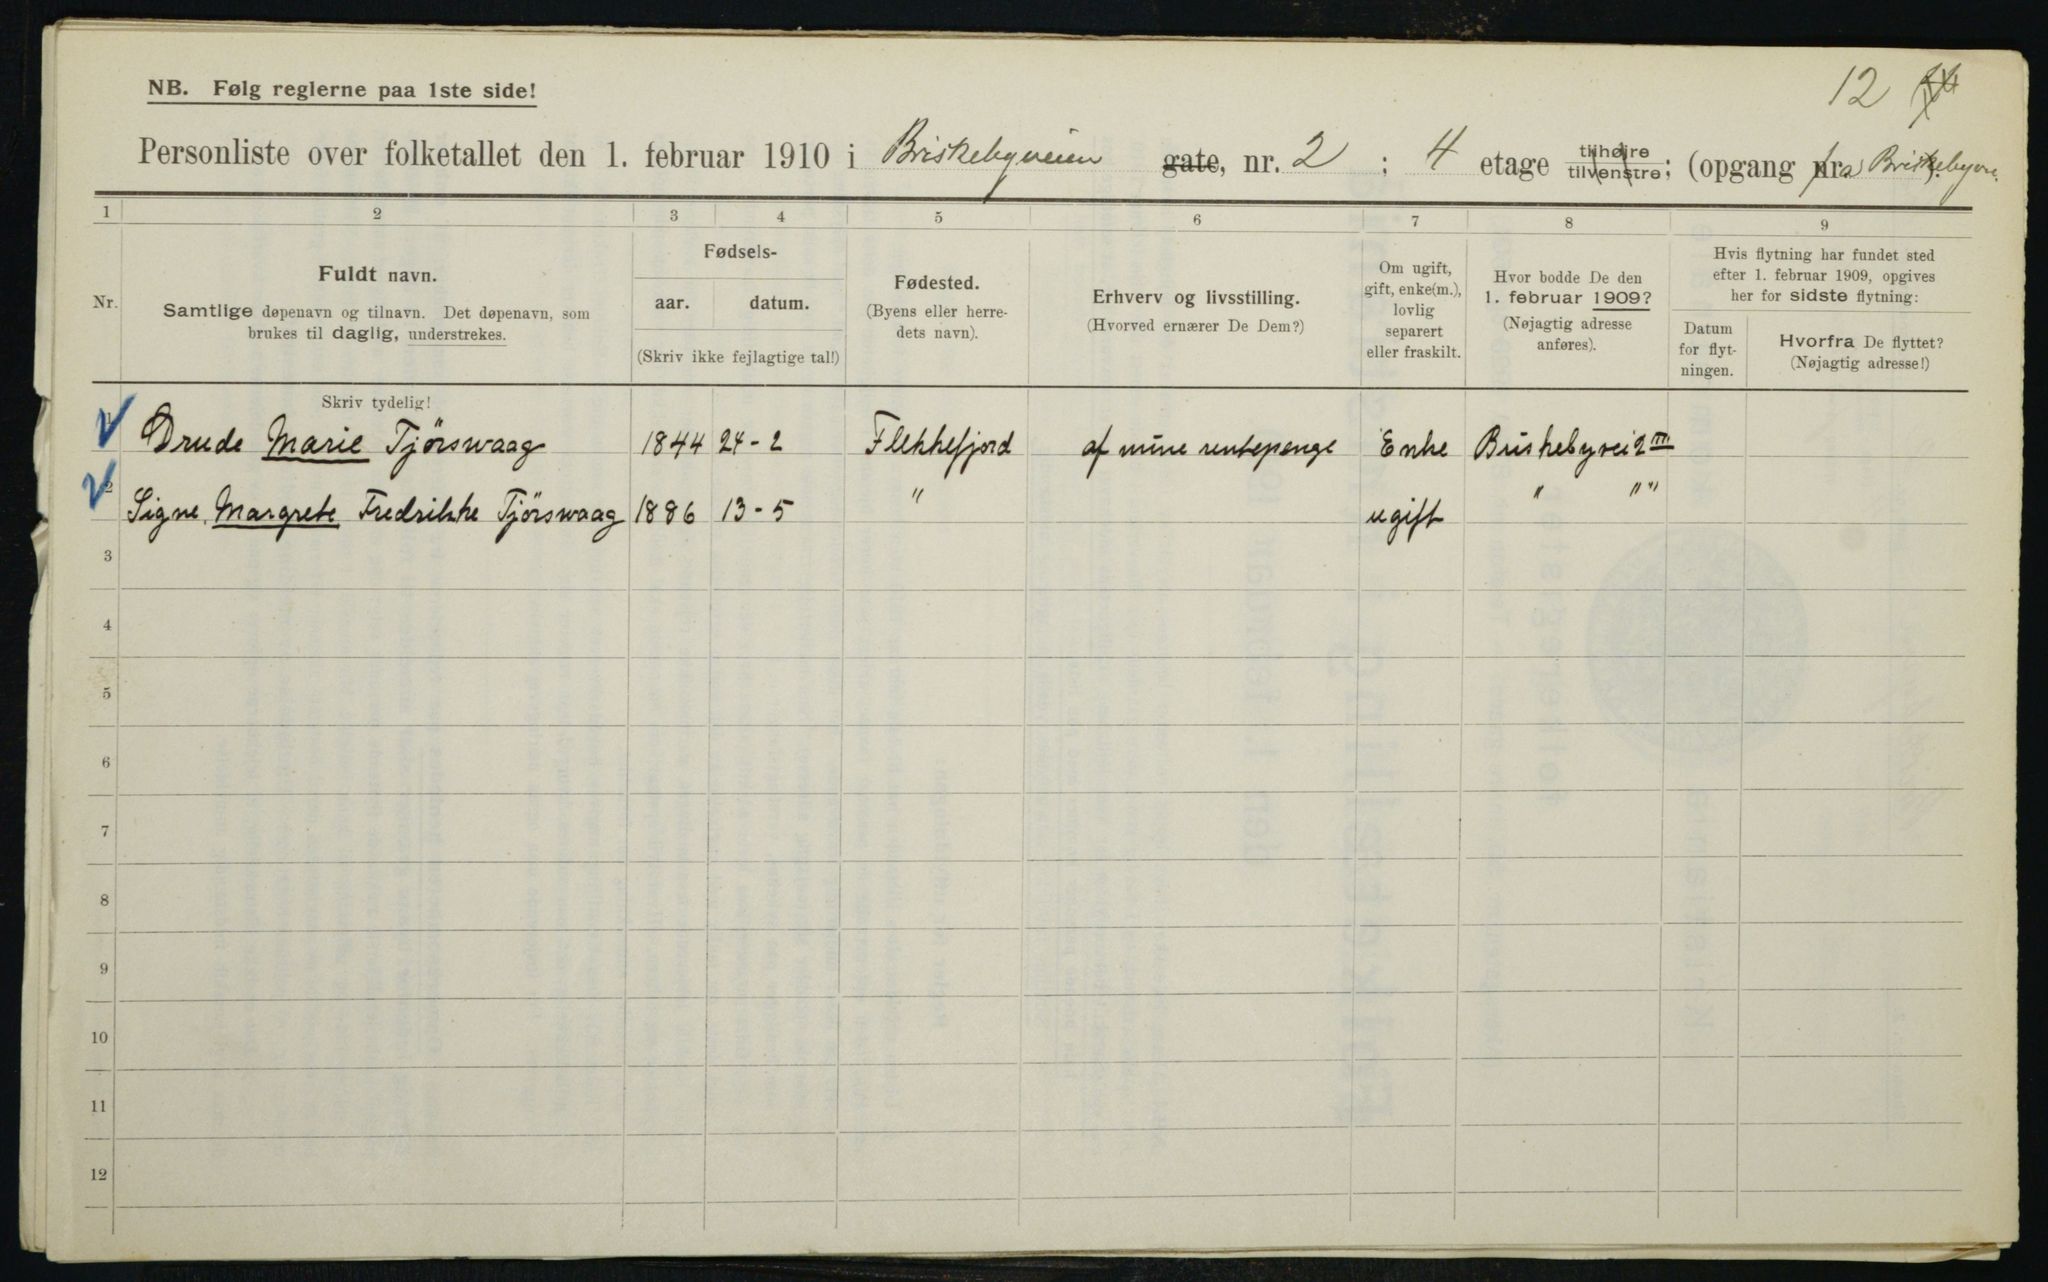 12
NB. Følg reglerne paa 1ste side!
Personliste over folketallet den 1. februar 1910 i Briskebyveien gate, nr. 2 ; 4 etage tilhøire tilvenstre; (opgang nr. Briskebyvei.
1 2 3 4 5 6 7 8 9
Nr.
Fuldt navn.
Samtlige døpenavn og tilnavn. Det døpenavn, som
brukes til daglig, understrekes.
Skriv tydelig!
Fødsels-
aar. datum.
(Skriv ikke fejlagtige tal!)
Fødested.
(Byens eller herre-
dets navn).
Erhverv og livsstilling.
(Hvorved ernærer De Dem?)
Om ugift,
gift, enke(m.),
lovlig
separert
eller fraskilt.
Hvor bodde De den
1. februar 1909?
(Nøjagtig adresse
anføres).
Hvis flytning har fundet sted
efter 1. februar 1909, opgives
her for sidste flytning:
Datum
for flyt-
ningen.
Hvorfra De flyttet?
(Nøjagtig adresse!)
Drude Marie Tjörswaag 1844 24-2 Flekkefjord af mine rentepenge Enke Briskebyvei 2 III
2 Signe Margrete Fredrikke Tjörswaag 1886 13-5 " ugift " " "
3
4
5
6
7
8
9
10
11
12